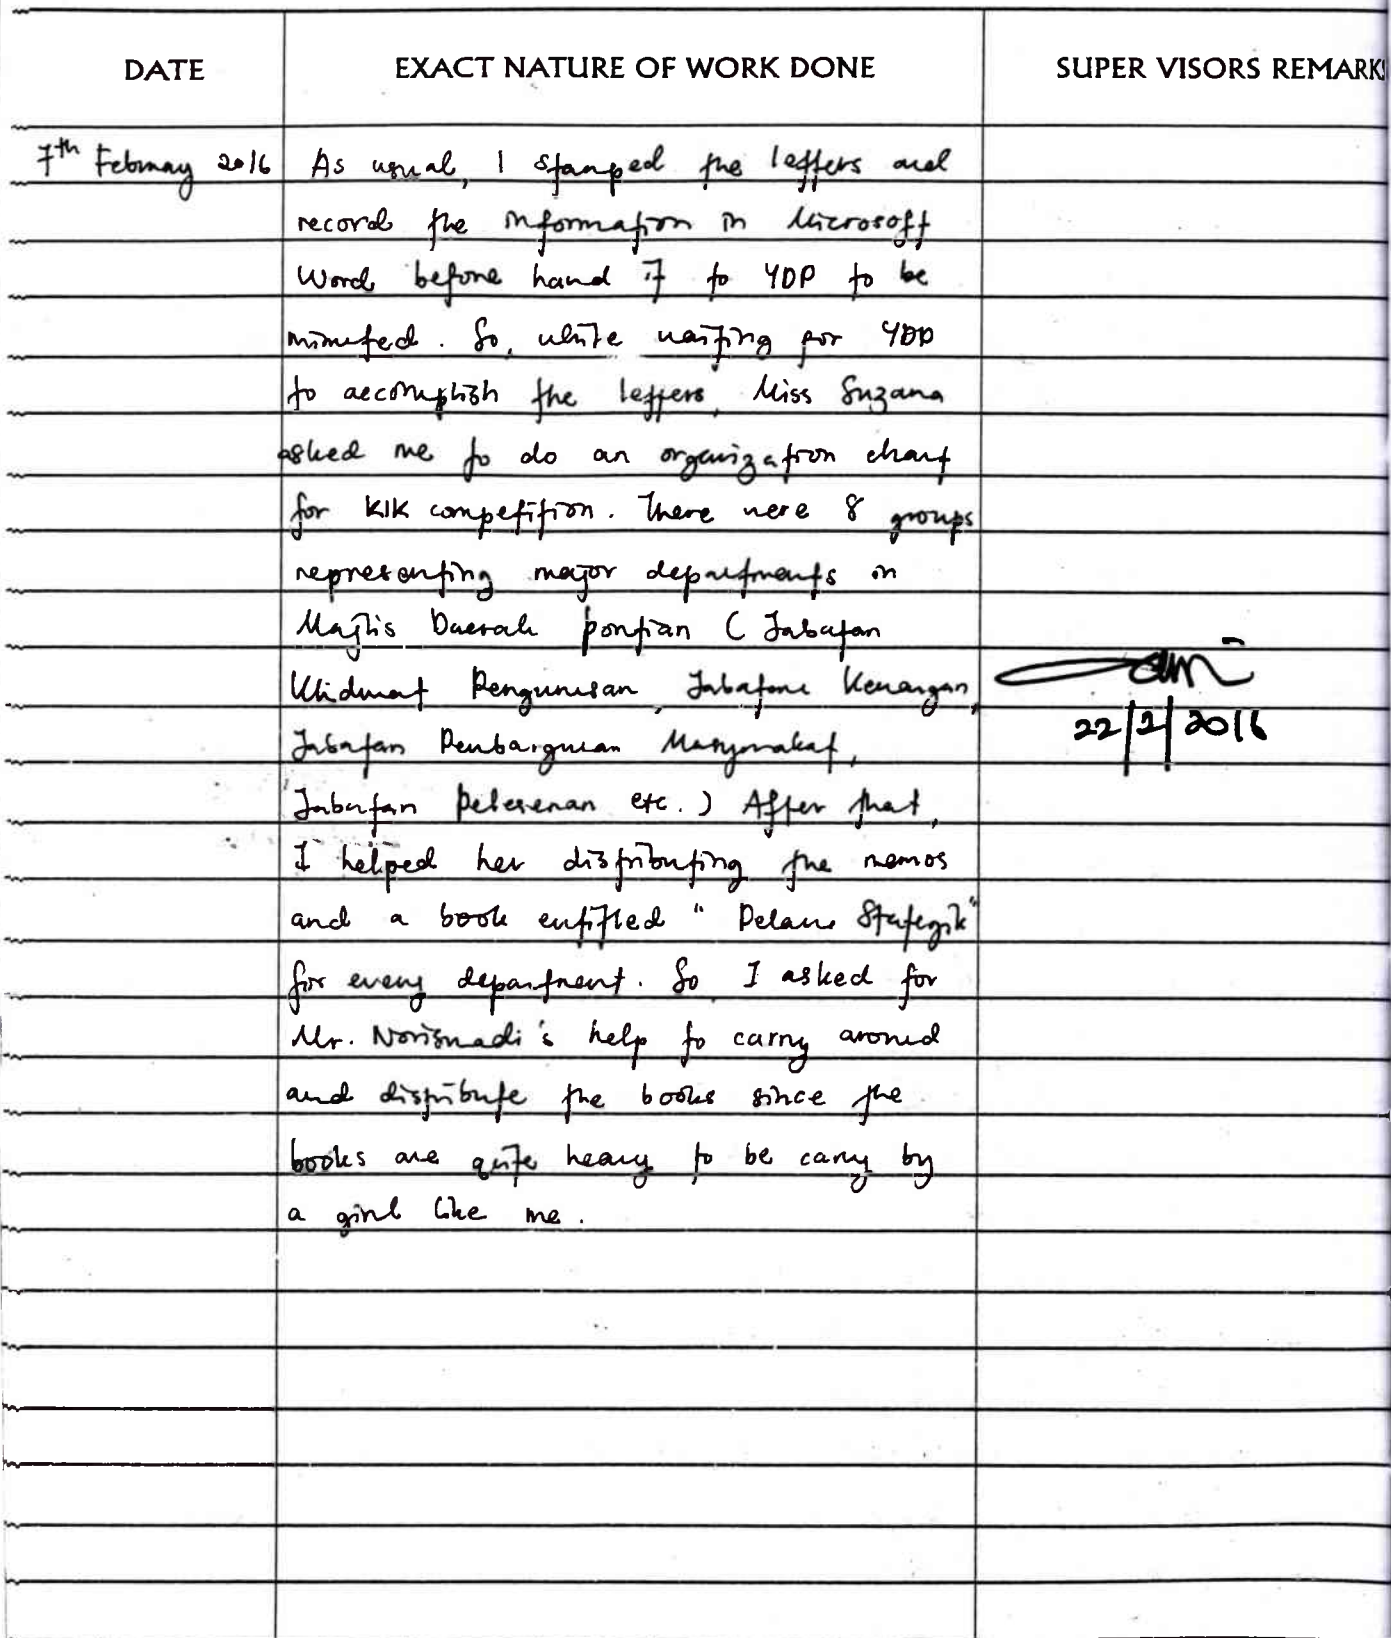 DATE EXACT NATURE OF WORK DONE SUPER VISORS REMARKS
7th February 2016 As usual, I stamped the letters and
record the information in Microsoft
Word before hand it to YDP to be
minuted. So, while waiting for YDP
to accomplish the letters, Miss Suzana
asked me to do an organization chart
for KIK competition. There were 8 groups
representing major departments in
Majlis Daerah pontian ( Jabatan
Khidmat Pengurusan, Jabatan Kewangan,
Jabatan Pembangunan Masyarakat,
Jabatan Pelesenan etc. ) After that,
I helped her distributing the memos
and a book entitled " Pelan Strategik"
for every department. So I asked for
Mr. Norismadi's help to carry around
and distribute the books since the
books are quite heavy to be carry by
a girl like me.
22/2/2016